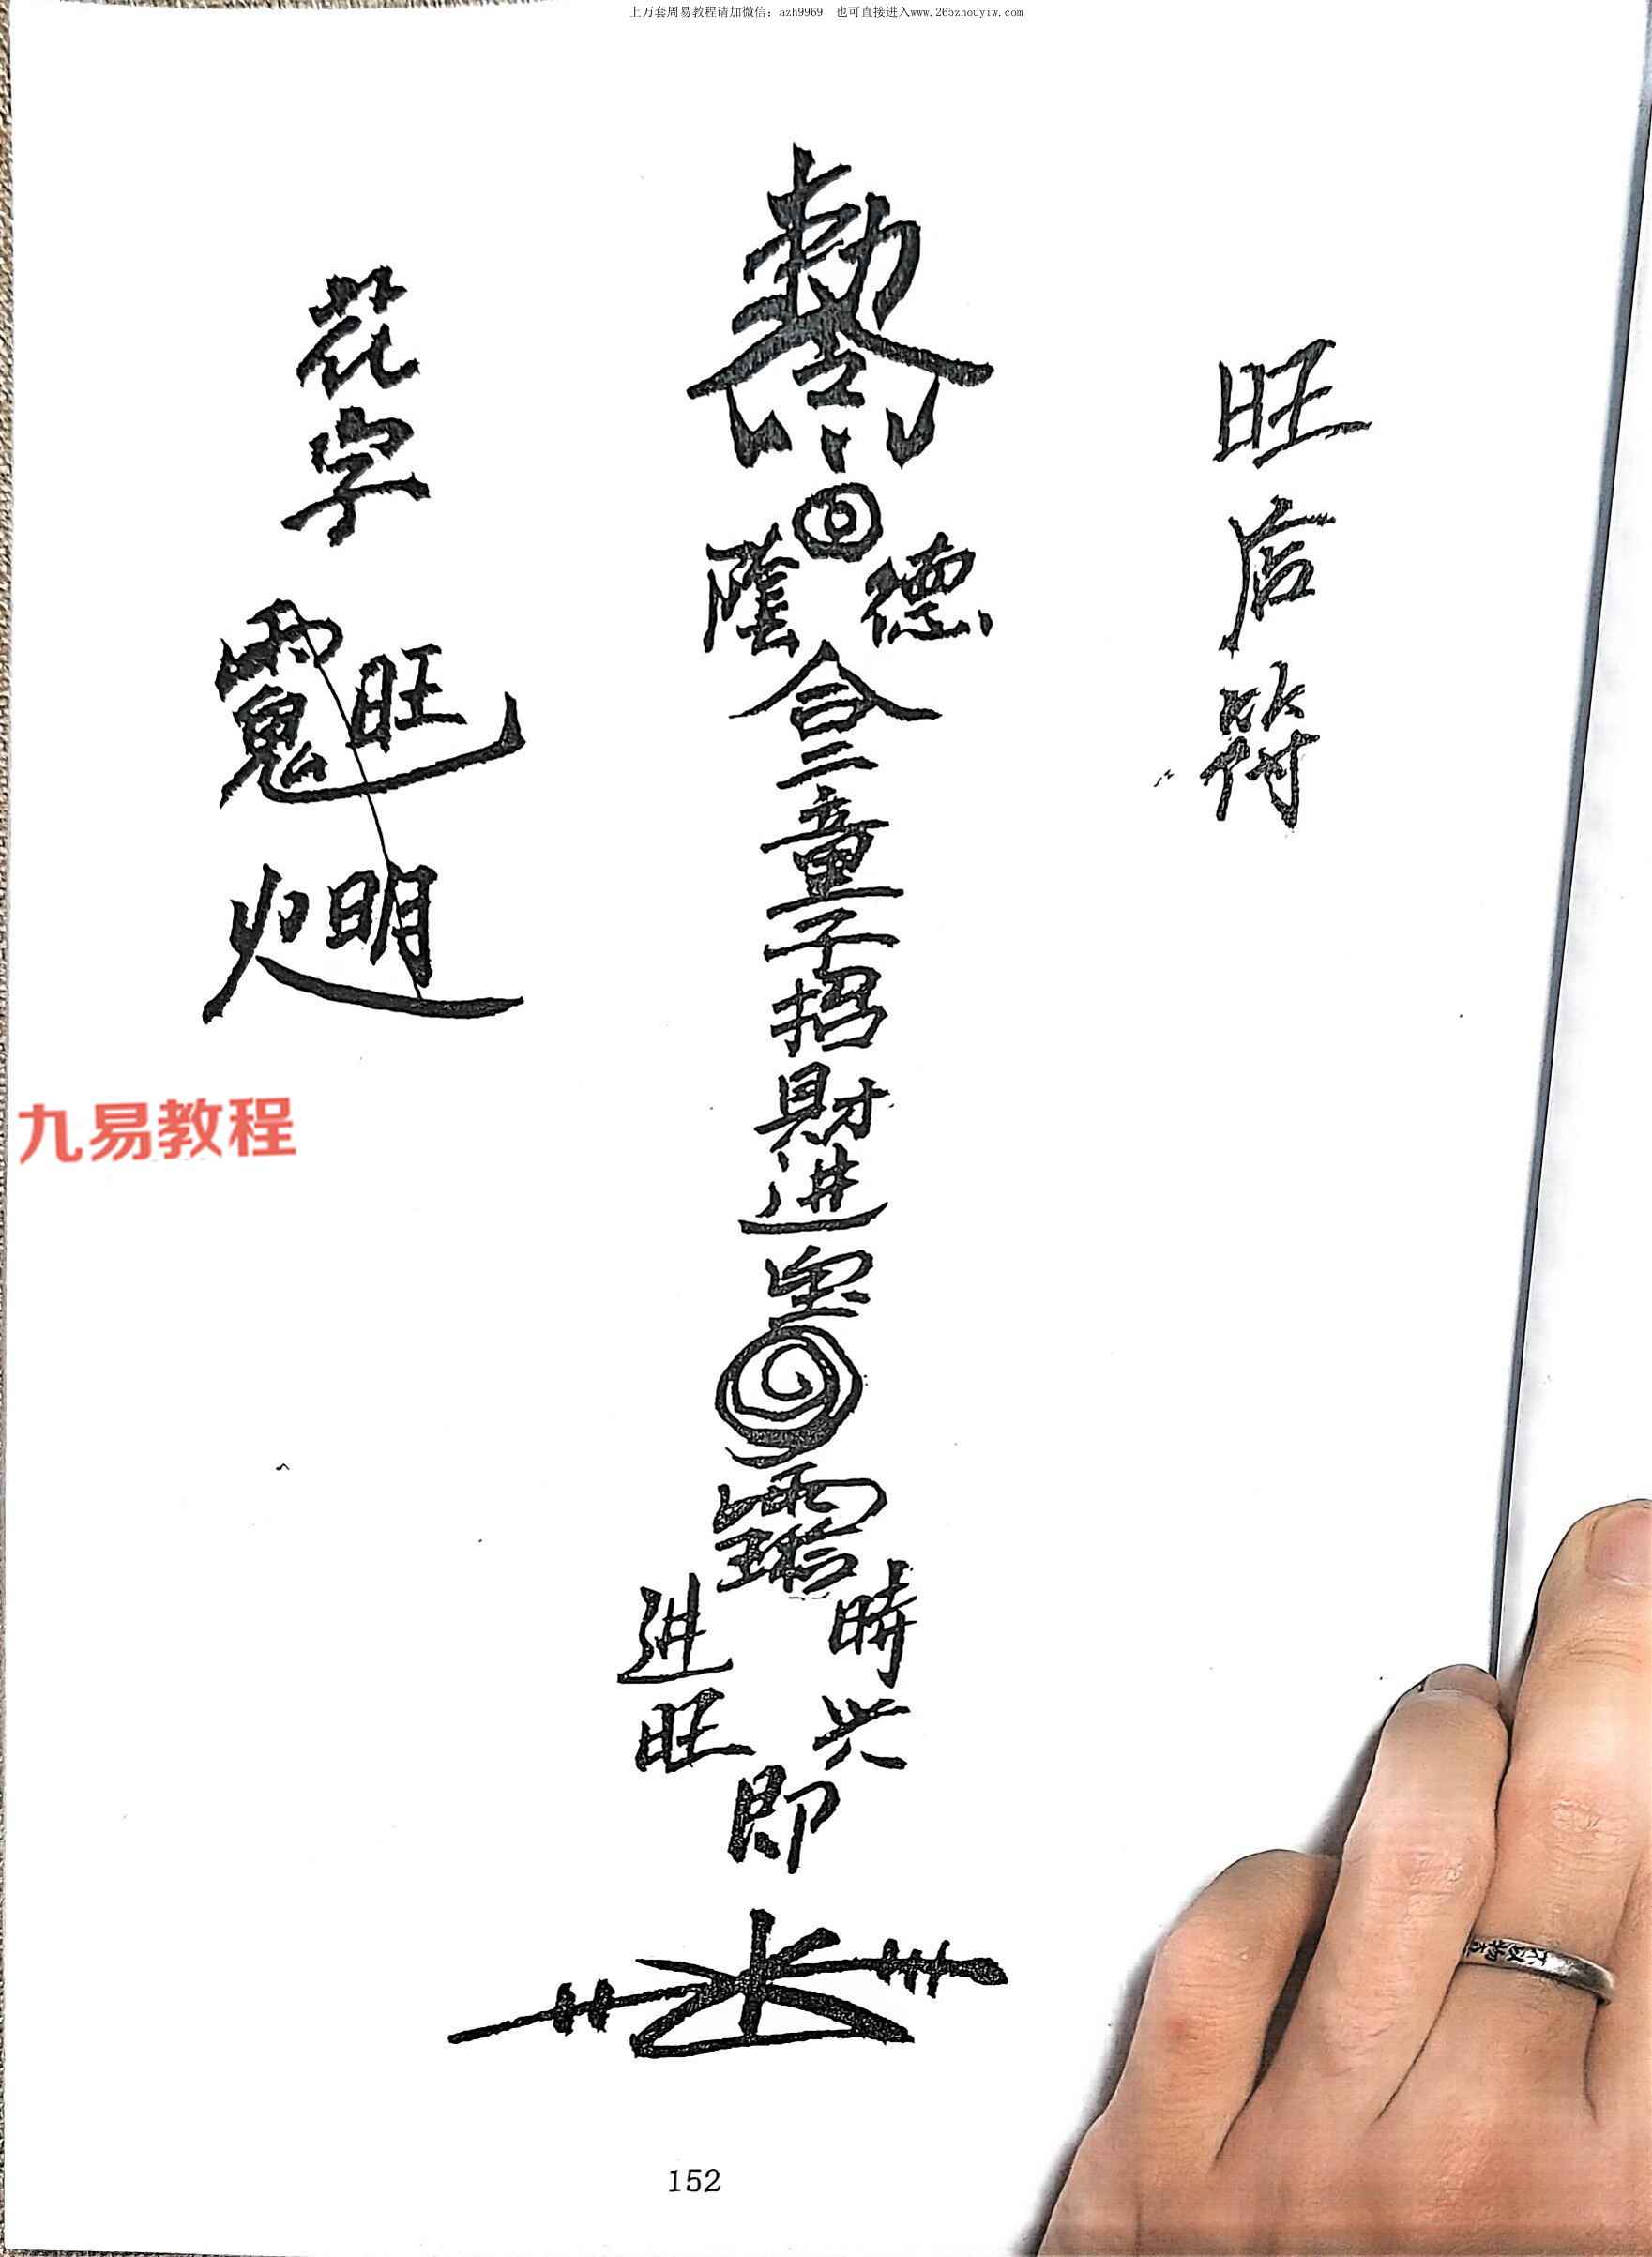 上万套周易教程请加微信：azh9969　也可直接进入www.265zhouyiw.com
旺店符
敕令
陰 德
合二童子招財进宝
進 時
旺 兴
即
花字
旺
明
九易教程
152